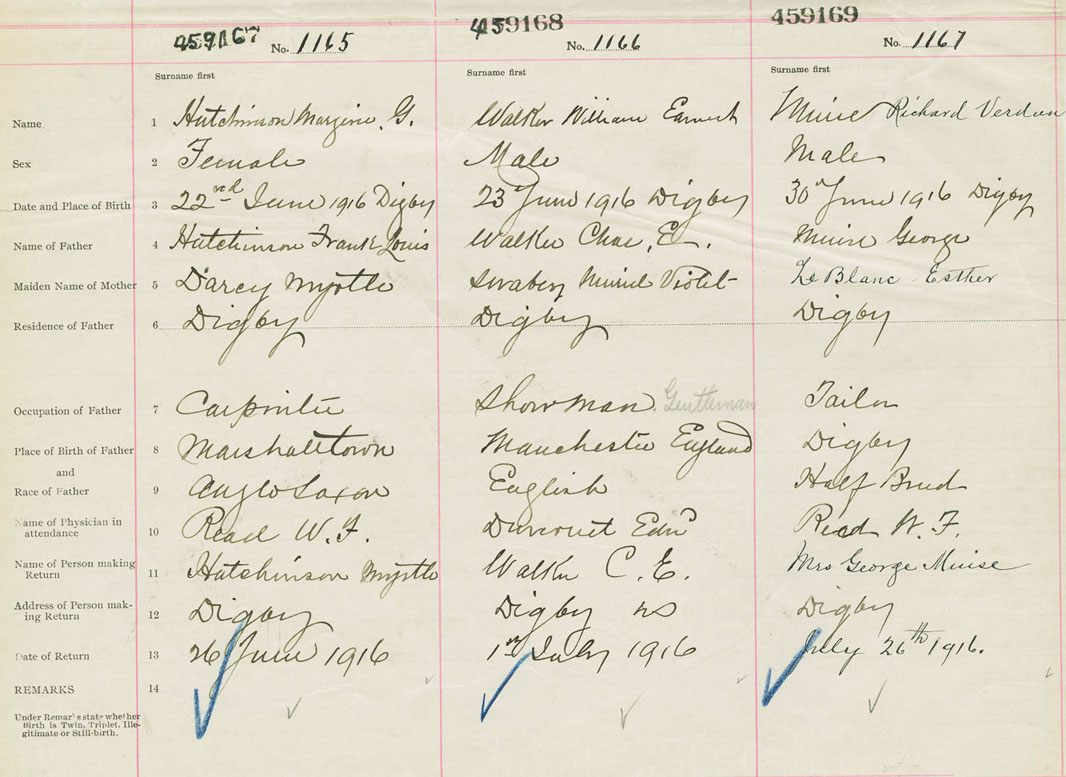 459167 459168 459169
No. 1165 No. 1166 No. 1167
Surname first Surname first Surname first
Name 1 Hutchinson Margerie, G. Walker William Earnest Muise Richard Verdun
Sex 2 Female Male Male
Date and Place of Birth 3 22nd June 1916 Digby 23rd June 1916 Digby 30th June 1916 Digby
Name of Father 4 Hutchinson Frank Louis Walker Chas. E. Muise George
Maiden Name of Mother 5 Darcy Myrtle Muriel Violet Le Blanc Esther
Residence of Father 6 Digby Digby Digby
Occupation of Father 7 Carpenter Showman. Gentleman Tailor
Place of Birth of Father 8 Marshalltown Manchester England Digby
and
Race of Father 9 Anglo Saxon English Half Breed
Name of Physician in
attendance 10 Read W. F. Edw Read W. F.
Name of Person making
Return 11 Hutchinson Myrtle Walker C. E. Mrs George Muise
Address of Person mak-
ing Return 12 Digby Digby NS Digby
Date of Return 13 26 June 1916 1st July 1916 July 26th 1916.
REMARKS 14
Under Remarks state whether
Birth is Twin, Triplet, Ille-
gitimate or Still-birth.